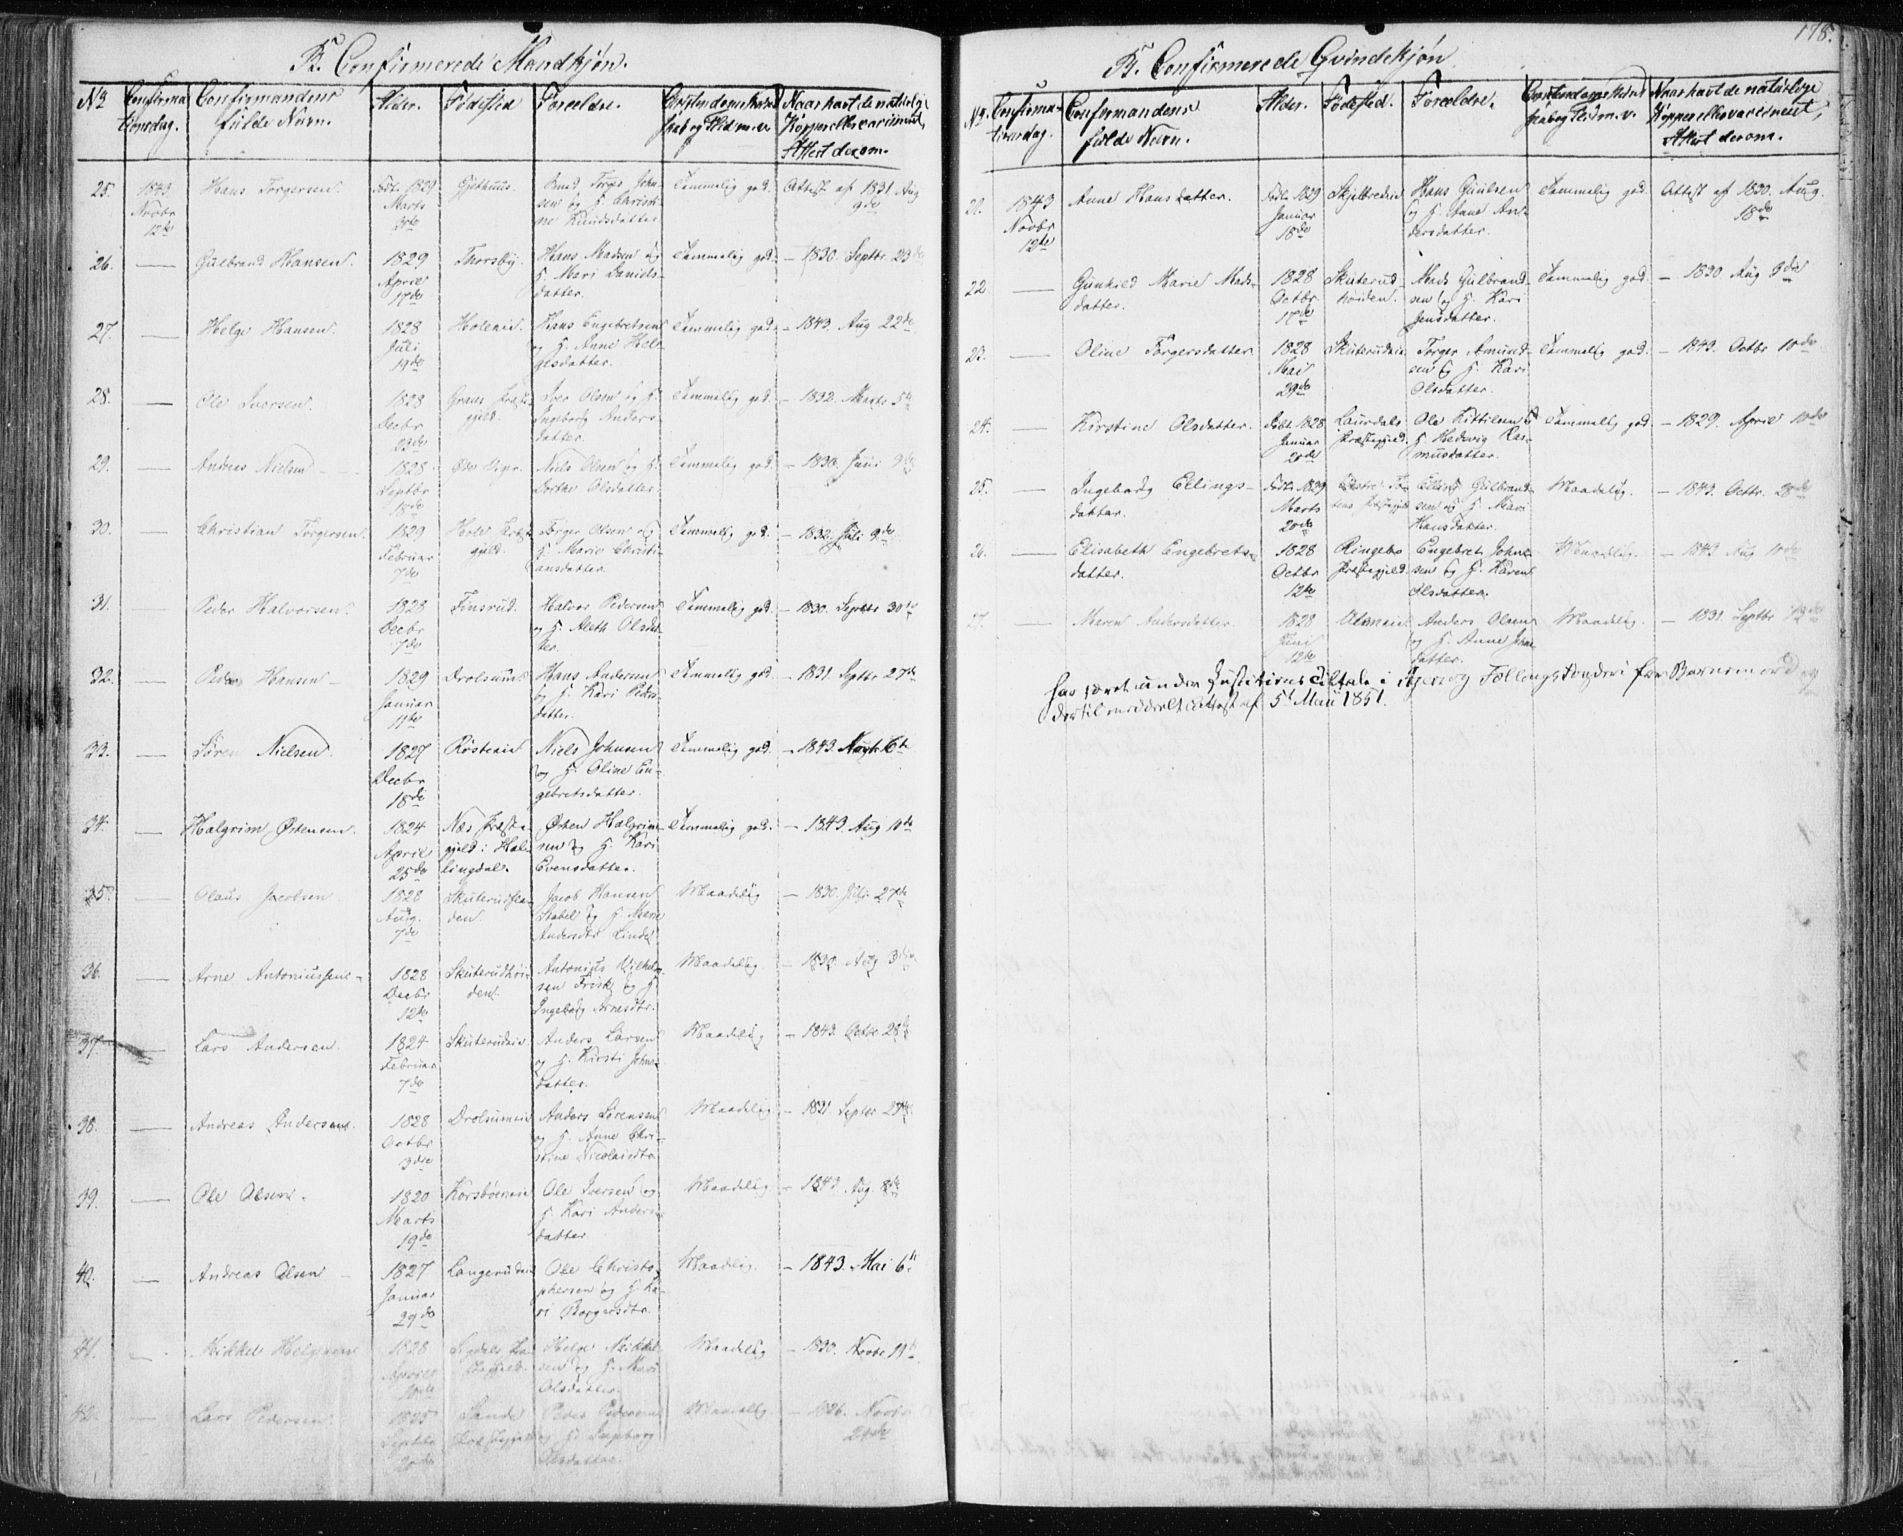 B. Confirmerede Mandkjøn.
No Confirmationsdag. Confirmandens fulde Navn. Alder. Fødested Forældre. Christendoms Kundskab og Flid m.v. Naar havt de naturlige Kopper eller vaccineret, Attest derom.
25. 1843 Novbr 12te Hans Torgersen. Født 1829 Marts Gjethuus. Torger Johnsen og H. Christine Knudsdatter Temmelig god. Attest af 1831. Aug 9de
26. — Gulbrand Hansen. 1829 April 17de Thorsby. Hans Madsen og H. Mari Danielsdatter. Temmelig god. — 1830. Septbr 23de
27. — Helge Hansen. 1828 Juli 19de Holeeie. Hans Engebretsen og H. Anne Helgesdatter. Temmelig god. — 1843. Aug 22de
28. — Ole Iversen. 1828 Decbr 23de Grans Præstegjeld. Iver Olsen og H. Ingeborg Andersdatter. Temmelig god. — 1832. Marts 5te
29. — Andreas Nielsen 1828 Septbr Niels Olsen og H. Dorthe Olsdatter. Temmelig god. — 1830. Juni
30. — Christian Torgersen. 1829 Februar 7de Hole Præstegjeld. Torger Olsen og H. Marie Christiansdatter. Temmelig god. — 1832. Juli 9de
31. — Peder Halvorsen. 1828 Decbr 7de Finsrud. Halvor Pedersen og H. Aleth Olsdatter. Temmelig god. — 1830. Septbr 30te
32. — Peder Hansen 1829 Januar 11te Drolsum. Hans Andersen og H. Kari Pedersdatter. Temmelig god. — 1831. Septbr 27de
33. — Søren Nielsen. 1827 Decbr 18de Røsteeie Niels Johnsen og H. Oline Engebretsdatter. Temmelig god. — 1843. 6te
34. — Halgrim Østensen. 1824 April 25de Næs Præstegjeld i Hallingdal. Østen Halgrimsen og H. Kari Evensdatter. Temmelig god. — 1843. Aug 10de
35. — Olaus Jacobsen 1828 Aug. 7de Jacob Hansen Stabel og H. Marie Andersdtr Linde Maadelig — 1830. Juli 27de
36. — Arne Antoniussen 1828 Decbr 12te Skuterudhøiden. Antonius Vilhelmsen Frisk og H. Ingeborg Arnesdtr. Maadelig. — 1830. Aug 3die
37. — Lars Andersen. 1824 Februar 7de Skuterudeie Anders Larsen og H. Kirsti Johnsdatter. Maadelig — 1843. Octbr 28de
38. — Andreas Andersen. 1828 Octbr 3die Drolsumeie Anders Sørensen og H. Anne Christine Nicolaisdtr Maadelig — Septbr
39. — Ole Olsen. 1820 Marts 19de Korsbøeneie Ole Iversen og H. Kari Andersdatter Maadelig — 1843. Aug.
40. — Andreas Olsen 1827 Januar 29de Langerudeie Ole Christophersen og H. Kari Borgersdtr. Maadelig. — 1843. Mai 6te
41. — Mikkel Helgesen 1828 Sigdals Præstegjeld. Helge Mikkelsen og H. Mari Olsdatter. Maadelig — 1830. Novbr 11te
42. — Lars Pedersen 1825 Septbr 20de Sande Præstegjeld Peder Pedersen og H. Ingeborg Maadelig — 1826. Novbr
178.
B. Confirmerede Qvindekjøn
No. Confirmationsdag. Confirmandens fulde Navn. Alder. Fødested. Forældre. Christendoms Kundskab og Flid m.v. Naar havt de naturlige Kopper eller vaccineret, Attest derom.
21. 1843 Novbr 12te Anne Hansdatter. Født 1829 Januar 18de Skjelbredeie Hans Gunlsen og H. Anne Andersdatter. Temmelig god. Attest af 1830. Aug. 18de
22. — Gunhild Marie Madsdatter. 1828 Octbr 17de Skuterudhøiden. Mads Gulbrandsen og H. Kari Jensdatter. Temmelig god. — 1830 Aug 3die
23. — Oline Torgersdatter 1828 Mai 29de Skuterudeie Torger Amundsen og H. Kari Olsdatter. Temmelig god. — 1843. Octbr 10de
24. — Kirstine Olsdatter. Født 1828 Januar 20de Laurdals Præstegjeld. Ole Kittilsen og H. Hedevig Rasmusdatter. Temmelig god. — 1829. April 10de
25. — Ingeborg Ellingsdatter. Født 1829 Marts 20de Præstegjeld Elling Gulbrandsen og H. Mari Hansdatter. Maadelig. — 1843. Octbr. 28de
26. — Elisabeth Engebretsdatter. 1828 Octbr 12te Ringebo Præstegjeld. Engebret Johnsen og H. Karen Olsdatter. Maadelig. — 1843 Aug 10de
27. — Maren Andersdatter. 1828 Juni 12te Anders Olsen og H. Anne Johnsdatter. Maadelig. — 1831. Septbr
har været under Justitiens Tiltale i Fællings for Barnemord og
dertil meddelt Attest af 5te Mai 1851.